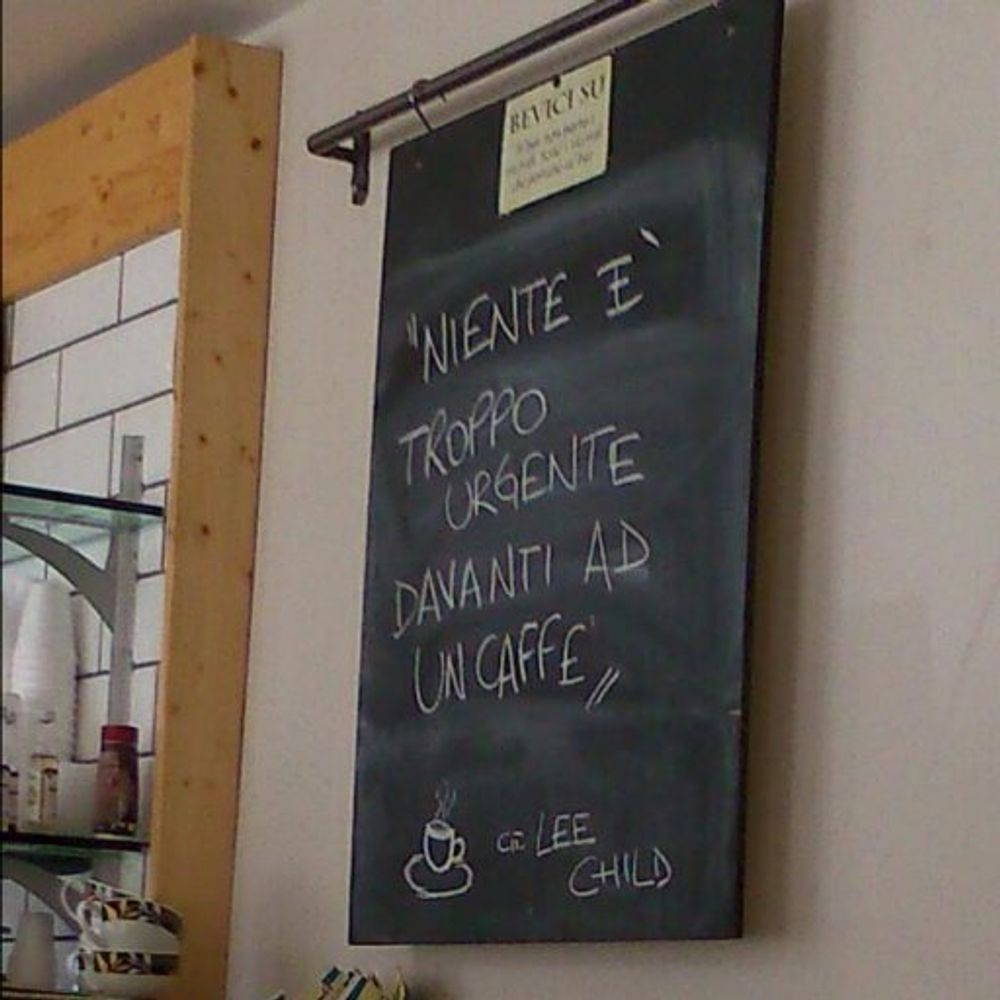 BEVICI SU
"NIENTE E`
TROPPO
URGENTE
DAVANTI AD
UN CAFFE'"
cit. LEE
CHILD